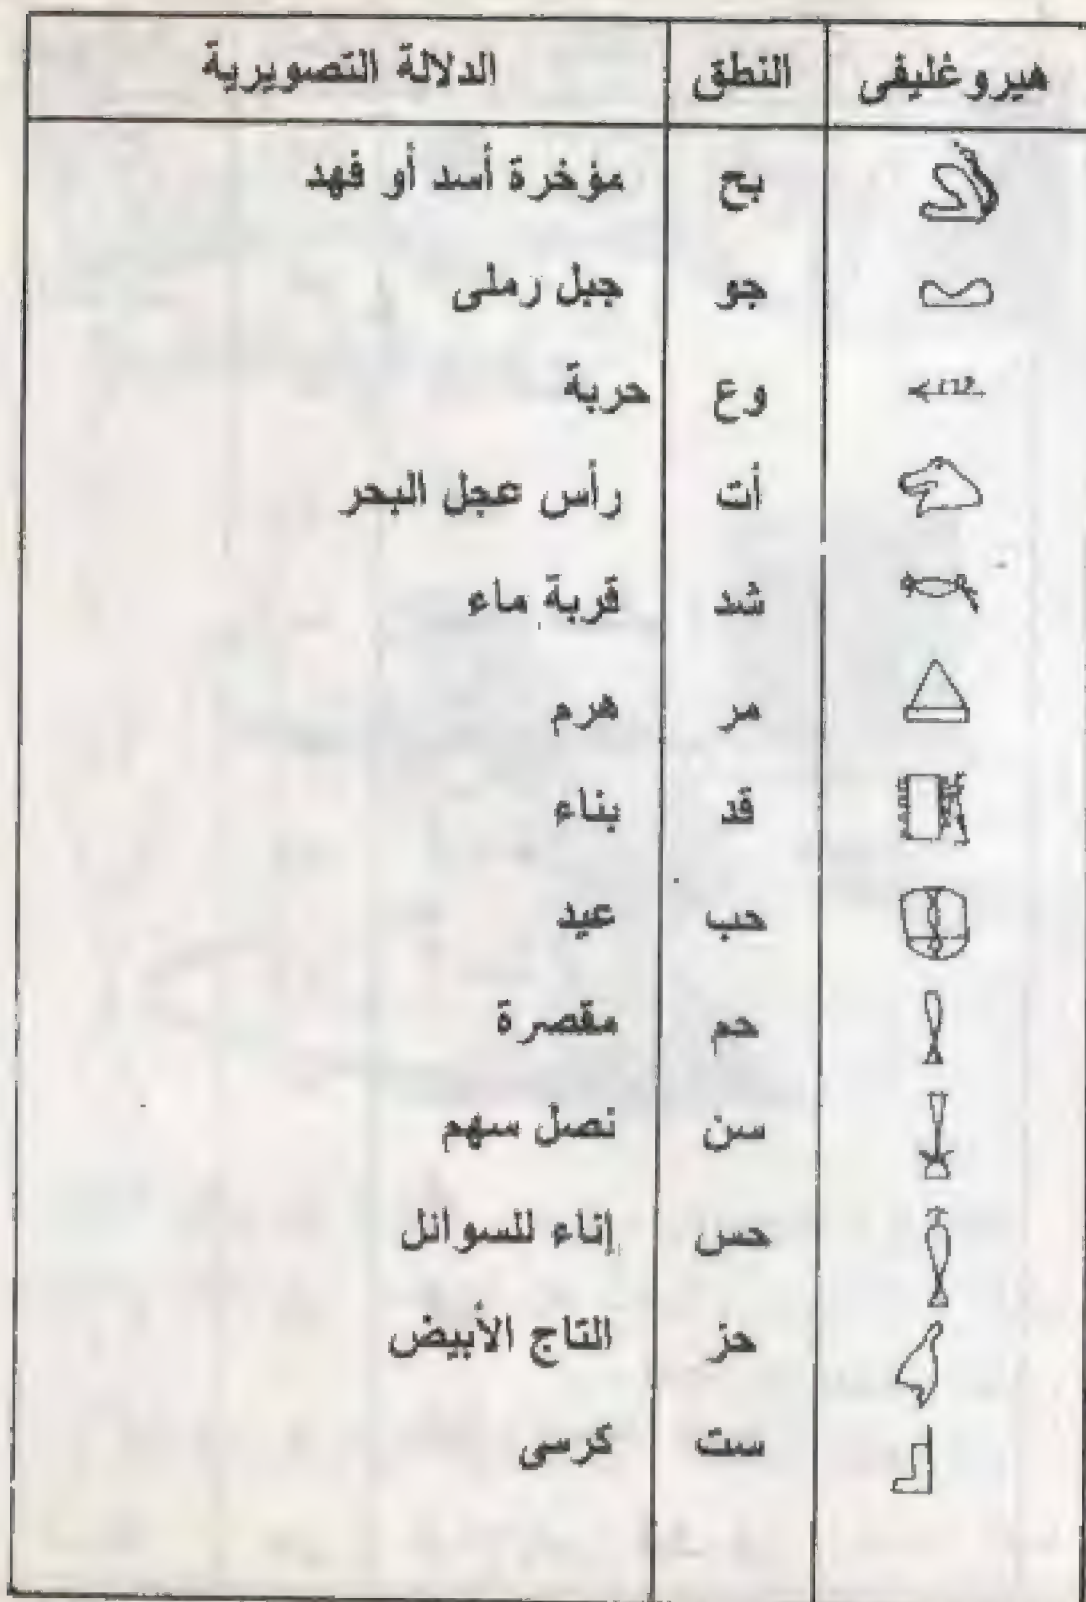 هيروغليفى النطق الدلالة التصويرية
بح مؤخرة أسد أو فهد
جو جبل رملى
وع حربة
أت رأس عجل البحر
شد قربة ماء
مر هرم
قد بناء
حب عيد
حم مقصرة
سن نصل سهم
حس إناء للسوائل
حز التاج الأبيض
ست كرسى